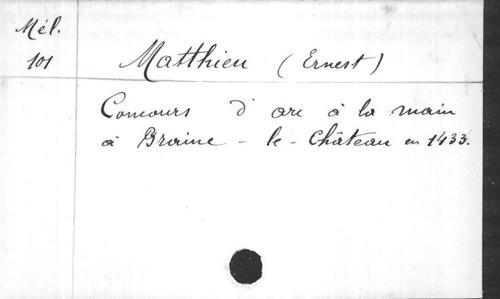 Mél.
101
Matthieu (Ernest)
Concours d'arc à la main
à Braine-le-Château en 1433.